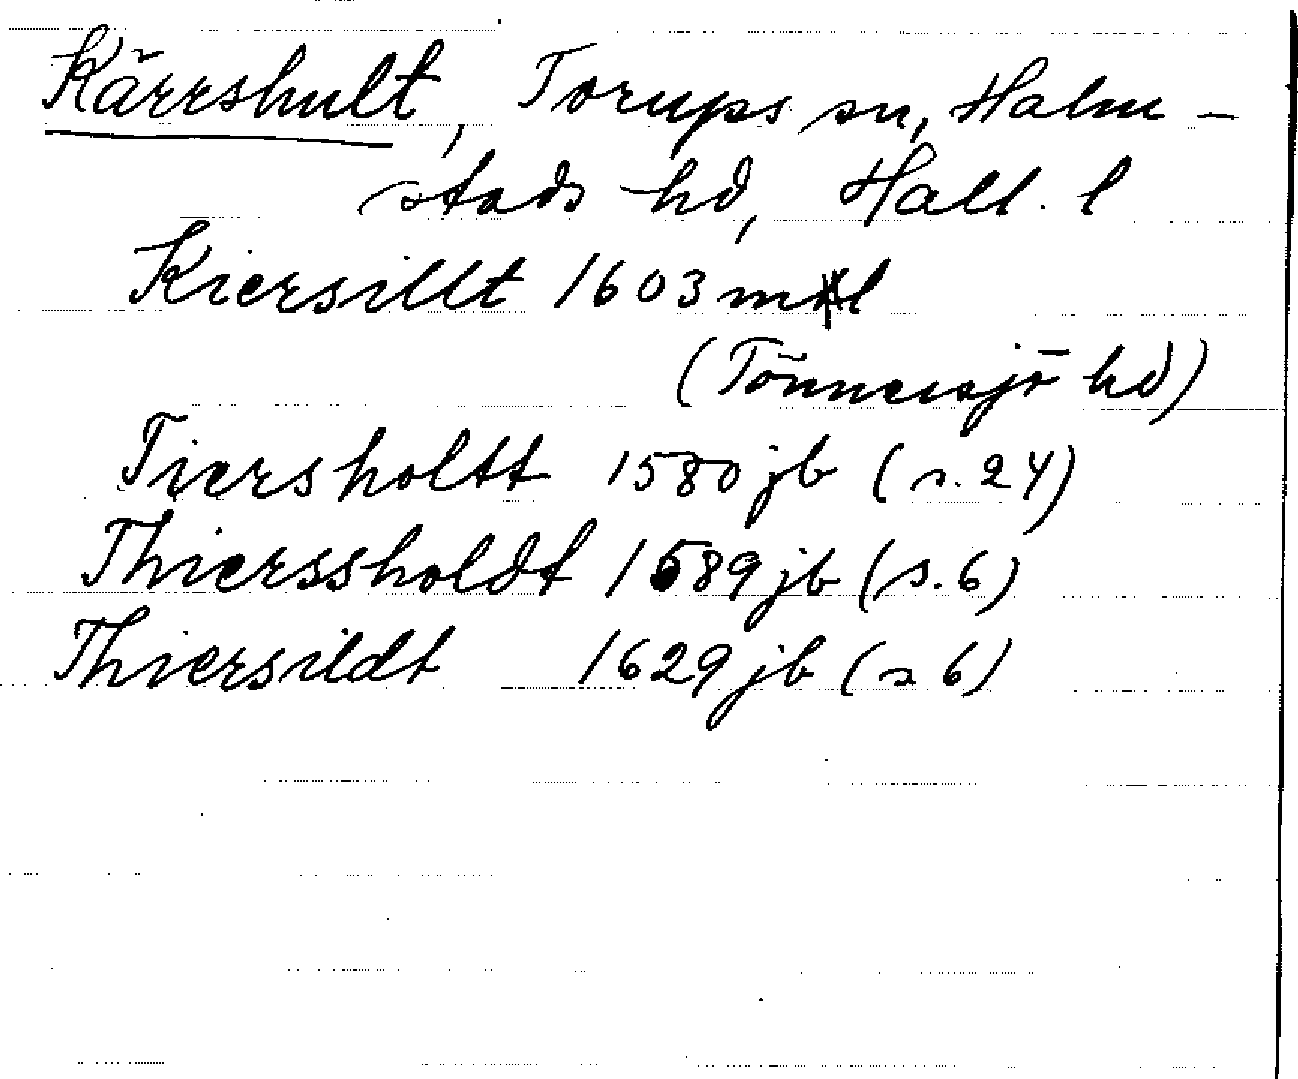 Kärrshult, Torups sn, Halm-
stads hd, Hall. l
Kiersillt 1603 mtl
(Tönnersjö hd)
Tiersholtt 1580 jb (s. 24)
Thierssholdt 1589 jb (s. 6)
Thiersildt 1629 jb (s 6)